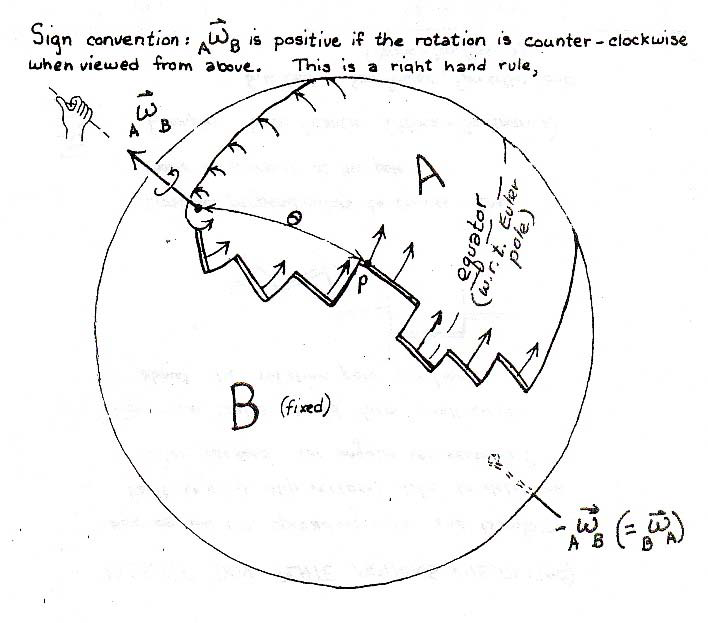 Sign convention: A ω⃗ B is positive if the rotation is counter-clockwise
when viewed from above. This is a right hand rule,
A ω⃗ B
A
θ
equator
(w.r.t. Euler
pole)
P
B (fixed)
-A ω⃗ B (= B ω⃗ A)